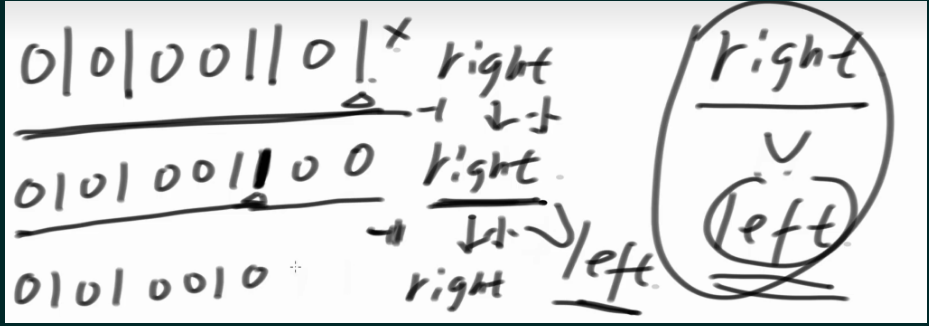 0101001101 x right
-1
0101001100 right
left
01010010 right
right
left